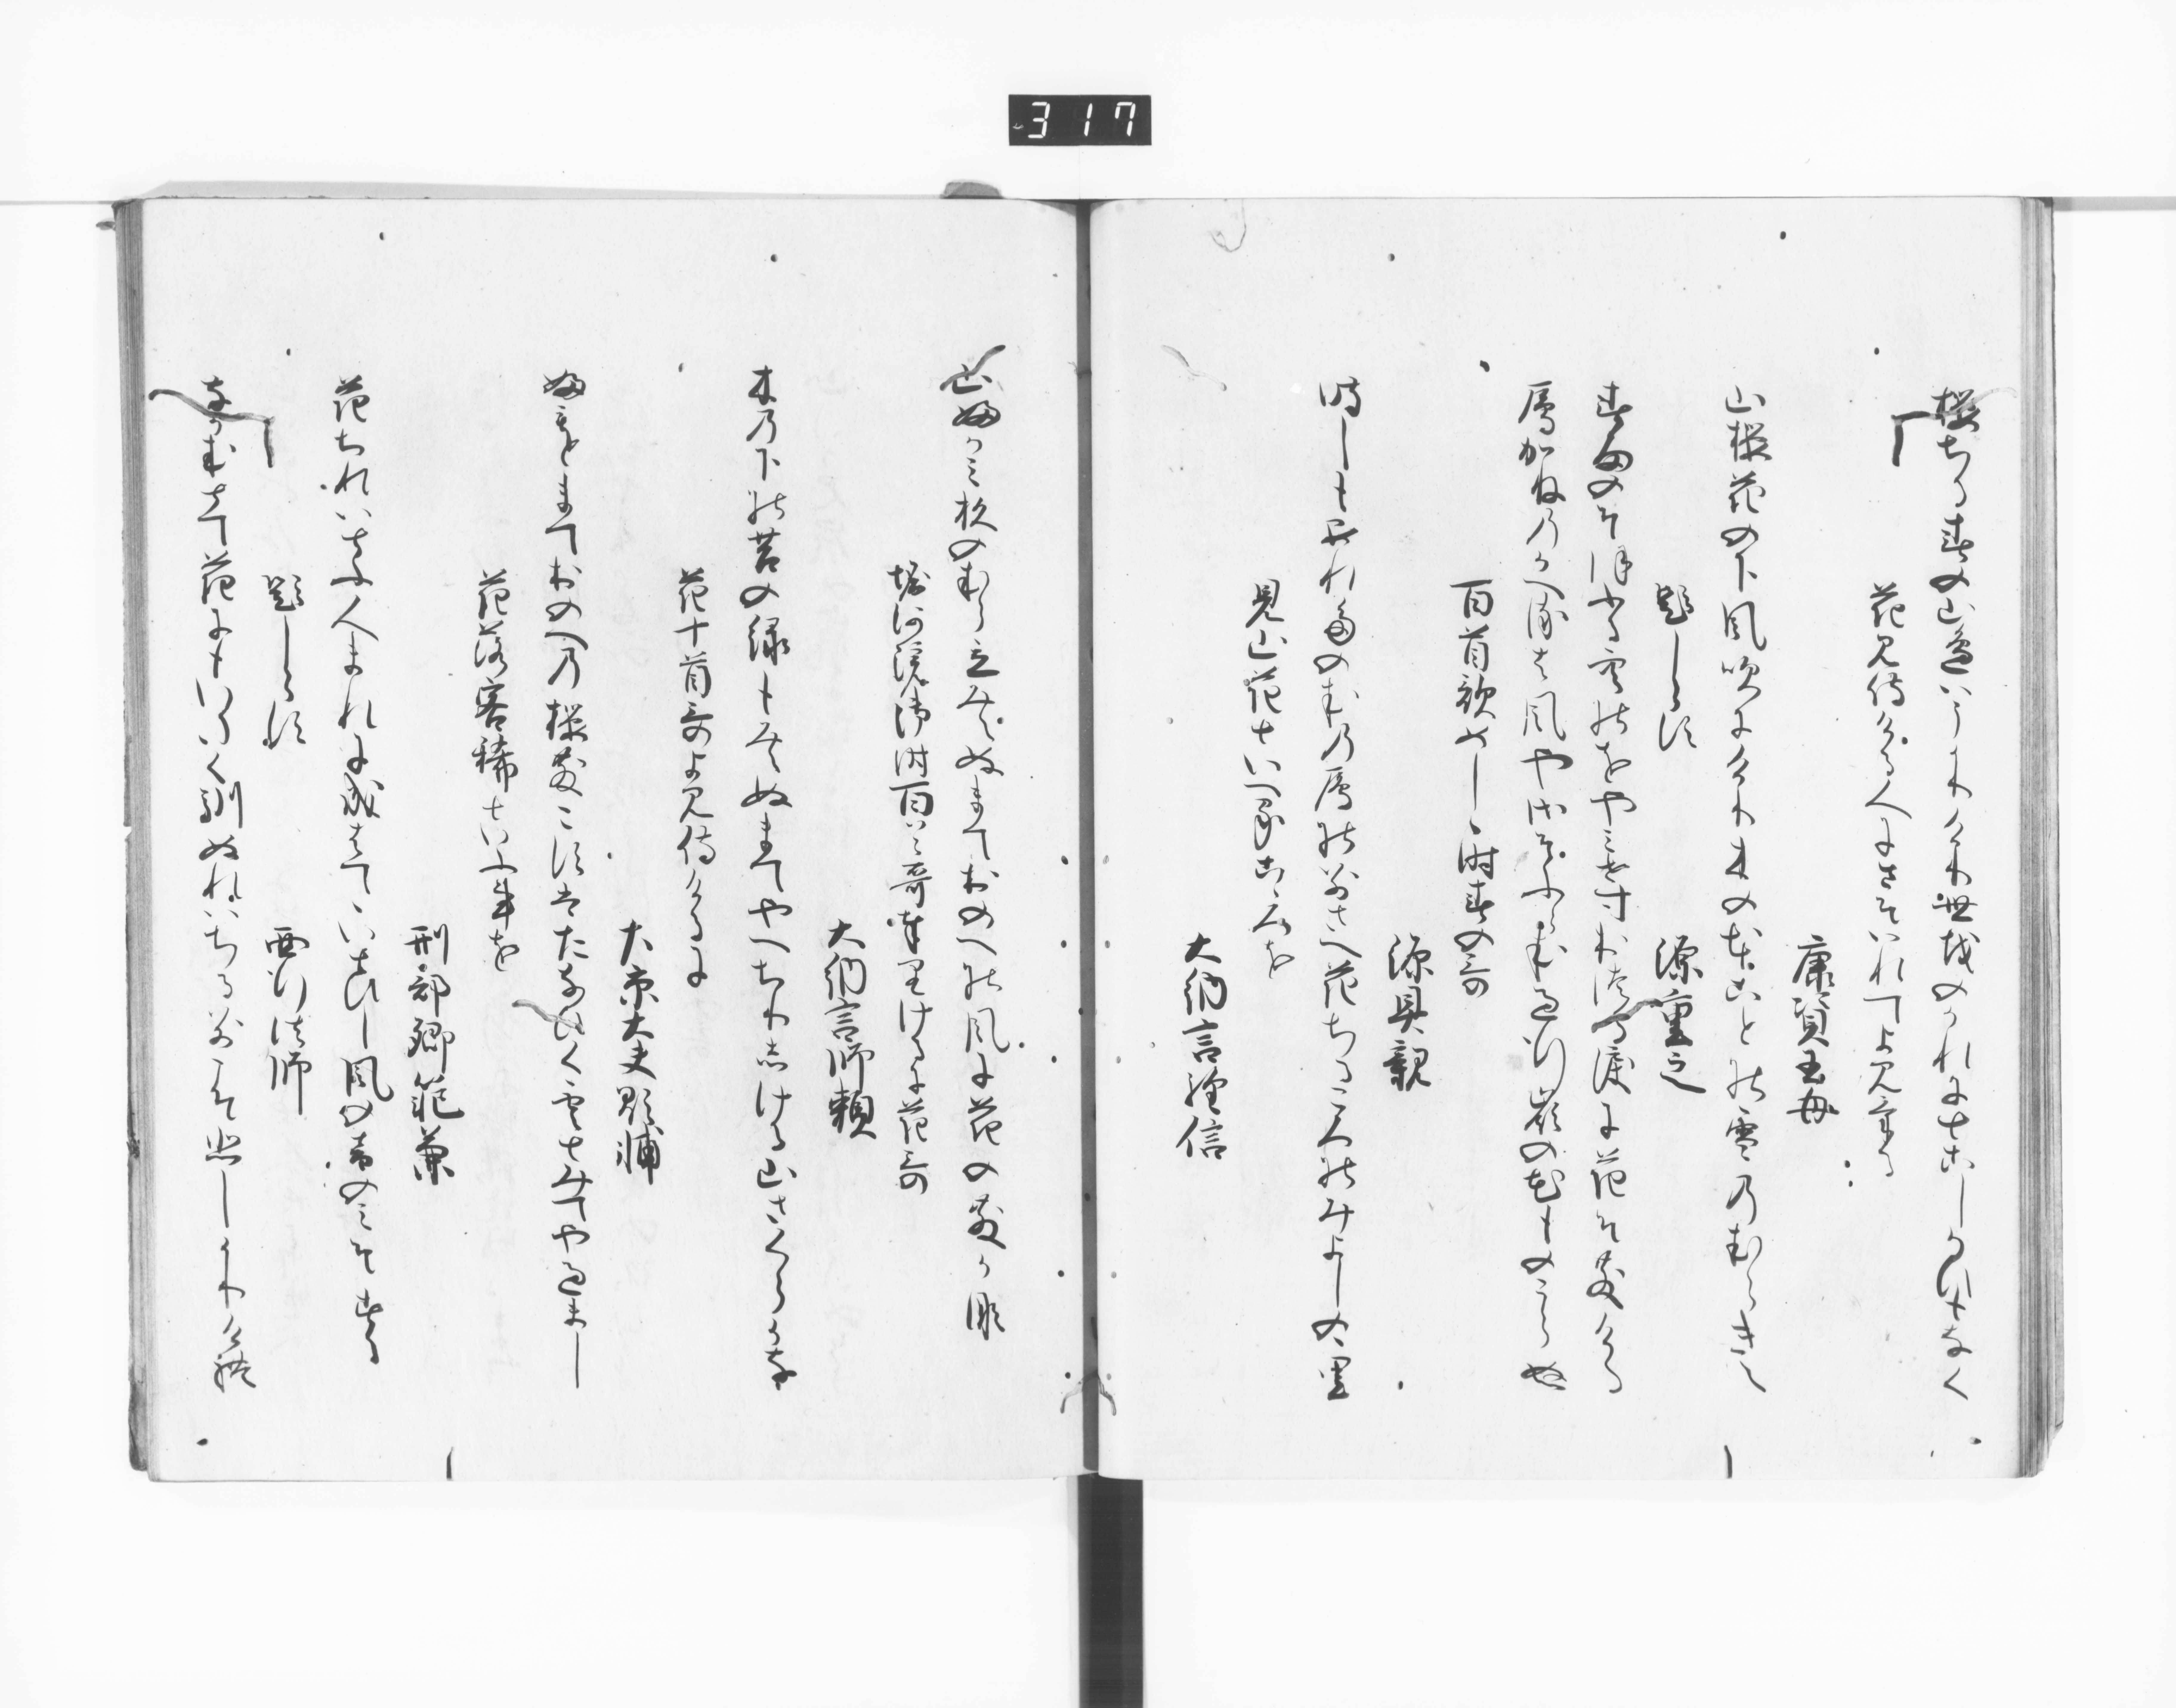 317
桜ちる春の山邊はうかりけり世越のかれにとこしかひもなく
花見侍ける人にさそはれてよみ侍る
康資王母
山桜花の下風吹にけり木の本ことの雪のむらきえ
題しらす
源重之
春雨のそほふる空のをやみせすおつる涙に花そ散ける
鴈かねのかへる羽風やさそふらむ過行嶺の花ものこらぬ
百首歌めしゝ時春の哥
源具親
時しもあれたのむの鴈の別さへ花ちるころのみよしのゝ里
見山花といへる心を
大納言經信
山ふかみ杉のむら立みえぬまておのへの風に花の散か那
堀河院御時百首哥奉りけるに花哥
大納言師頼
木の下の苔の緑もみえぬまてやへちりしける山さくらかな
花十首哥よみ侍けるに
左京大夫顕輔
ふもとまておのへの桜散こすはたなひく雲とみてや過まし
花落客稀といふ事を
刑部卿範兼
花ちれはとふ人まれに成はてゝいとひし風の音のみそする
題しらす
西行法師
なかむとて花にもいたく馴ぬれはちる別こそ悲しかりけれ